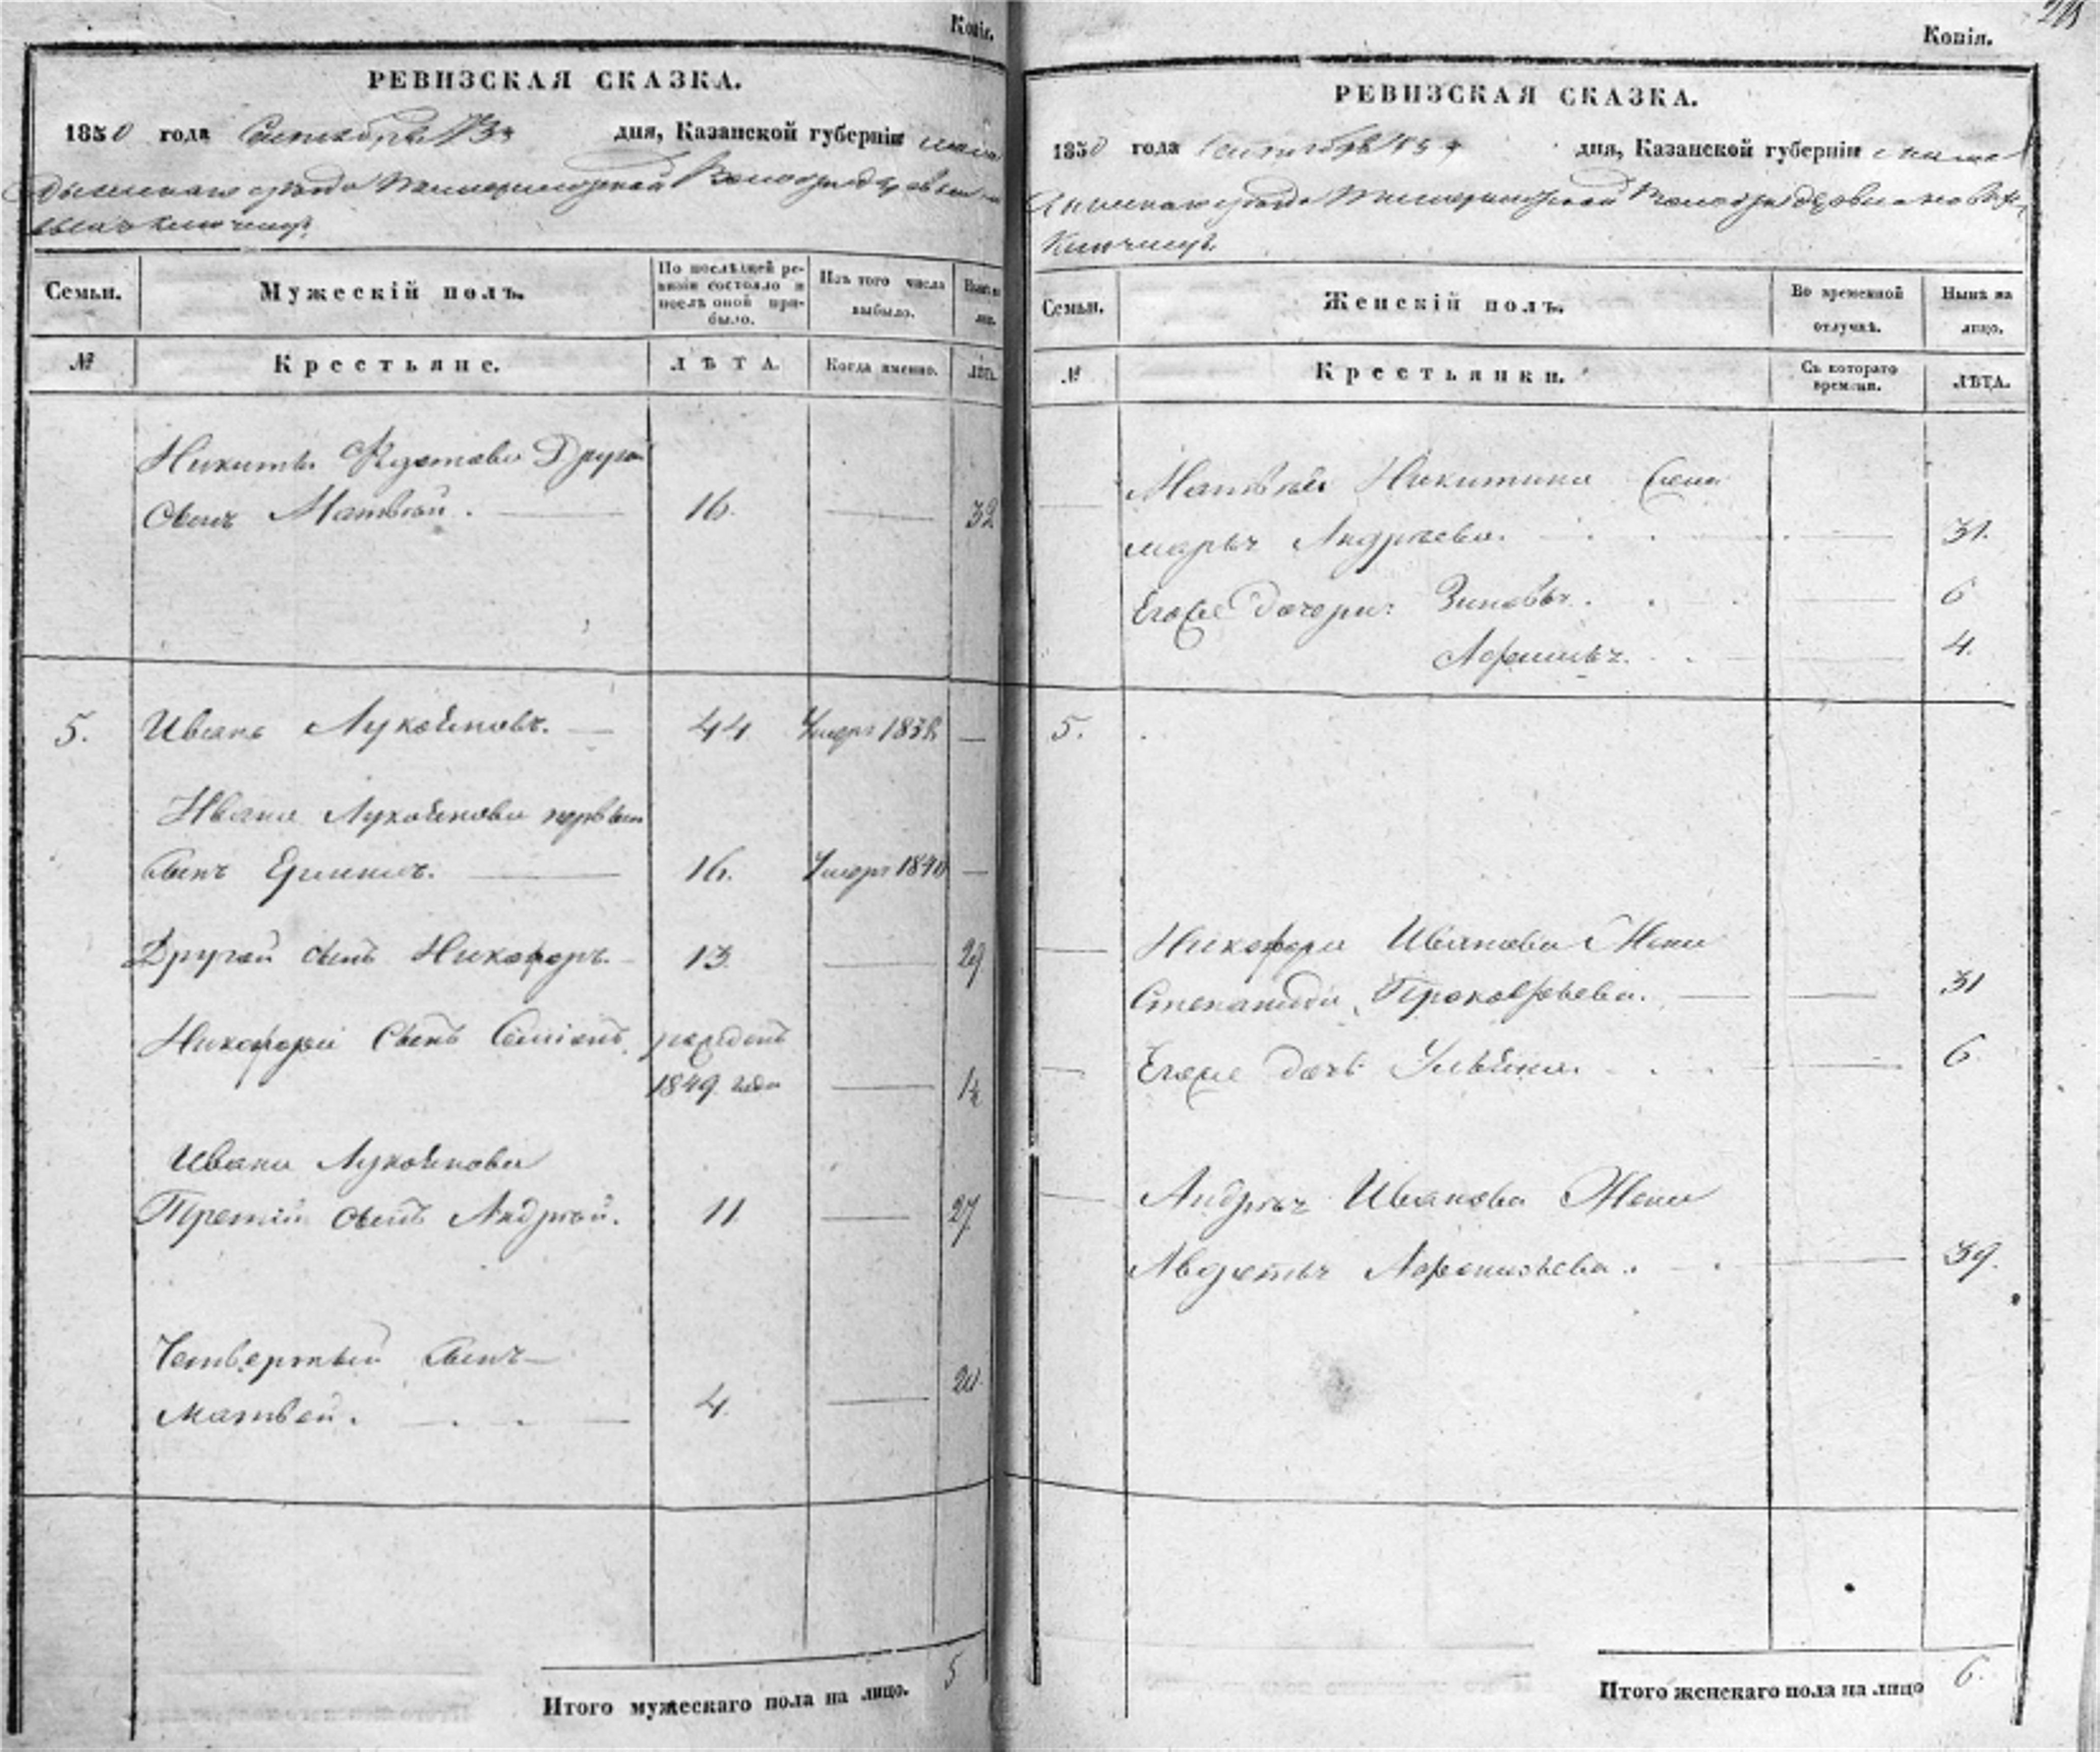 Копія.
РЕВИЗСКАЯ СКАЗКА.
1850 года Сентября 13 дня, Казанской губерніи мама
дышскаго уѣзда волости деревни
Семьи.
Мужескій полъ.
По послѣдней ре-
визіи состояло и
послѣ оной при-
было.
Изъ того числа
выбыло.
Нынѣ на
лицо.
№
Крестьяне.
ЛѢТА.
Когда именно.
Лѣта.
Никиты Другой
сынъ Матвей. 16. 32
5. Иванъ Лукояновъ. 44 Умеръ 1838
Ивана Лукоянова первый
сынъ 16. Умеръ 1840
Другой сынъ Никифоръ. 13 29
Никифора сынъ Семіонъ рожденъ
1849 года 1½
Ивана Лукоянова
Третій сынъ Андрей. 11 27
Четвертый сынъ
Матвей. 4. 20
Итого мужескаго пола на лицо. 5
Копія.
РЕВИЗСКАЯ СКАЗКА.
1850 года Сентября 13 дня, Казанской губерніи мама
дышскаго уѣзда волости деревни
Семьи.
Женскій полъ.
Во временной
отлучкѣ.
Нынѣ на
лицо.
№
Крестьянки.
Съ котораго
времени.
ЛѢТА.
Матвея Никитина жена
марья Андреева. 31.
Егоже дочери: Зиновья. 6
Афимья. 4.
5.
Никифора Иванова Жена
Степанида Прокофьева. 31
Егоже дочь Ульяна. 6.
Андрея Иванова Жена
Авдотья Афонасьева. 39.
Итого женскаго пола на лицо 6.